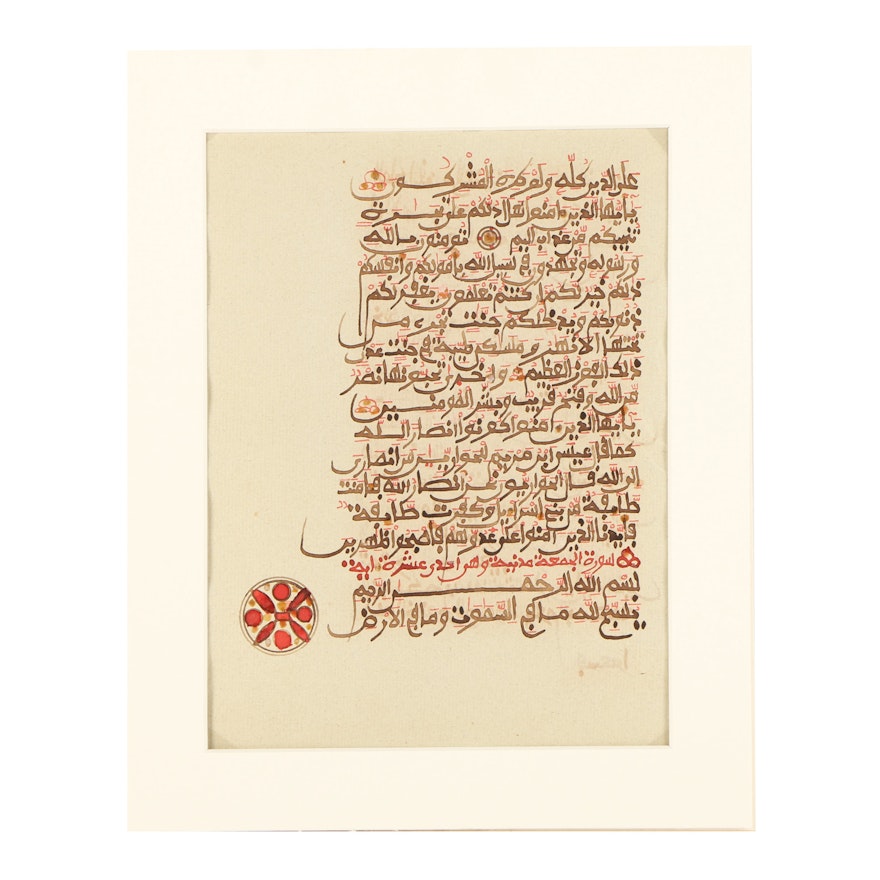 على الدين كله ولو كره المشركون
يايها الذين ءامنوا هل ادلكم على تجرة
تنجيكم من عذاب اليم تومنون بالله
ورسوله وتجهدون في سبيل الله باموالكم وانفسكم
ذلكم خير لكم ان كنتم تعلمون يغفر لكم
ذنوبكم ويدخلكم جنت تجرى من
تحتها الانهر ومسكن طيبة في جنت عدن
ذلك الفوز العظيم واخرى تحبونها نصر
من الله وفتح قريب وبشر المومنين
يايها الذين ءامنوا كونوا انصارا لله
كما قال عيسى ابن مريم للحوارين من انصارى
الى الله قال الحواريون نحن انصار الله فامنت
طايفة من بنى اسراءيل وكفرت طايفة
فايدنا الذين ءامنوا على عدوهم فاصبحوا ظهرين
سورة الجمعة مدنية وهى احدى عشرة ءاية
بسم الله الرحمن الرحيم
يسبح لله ما في السموت وما في الارض